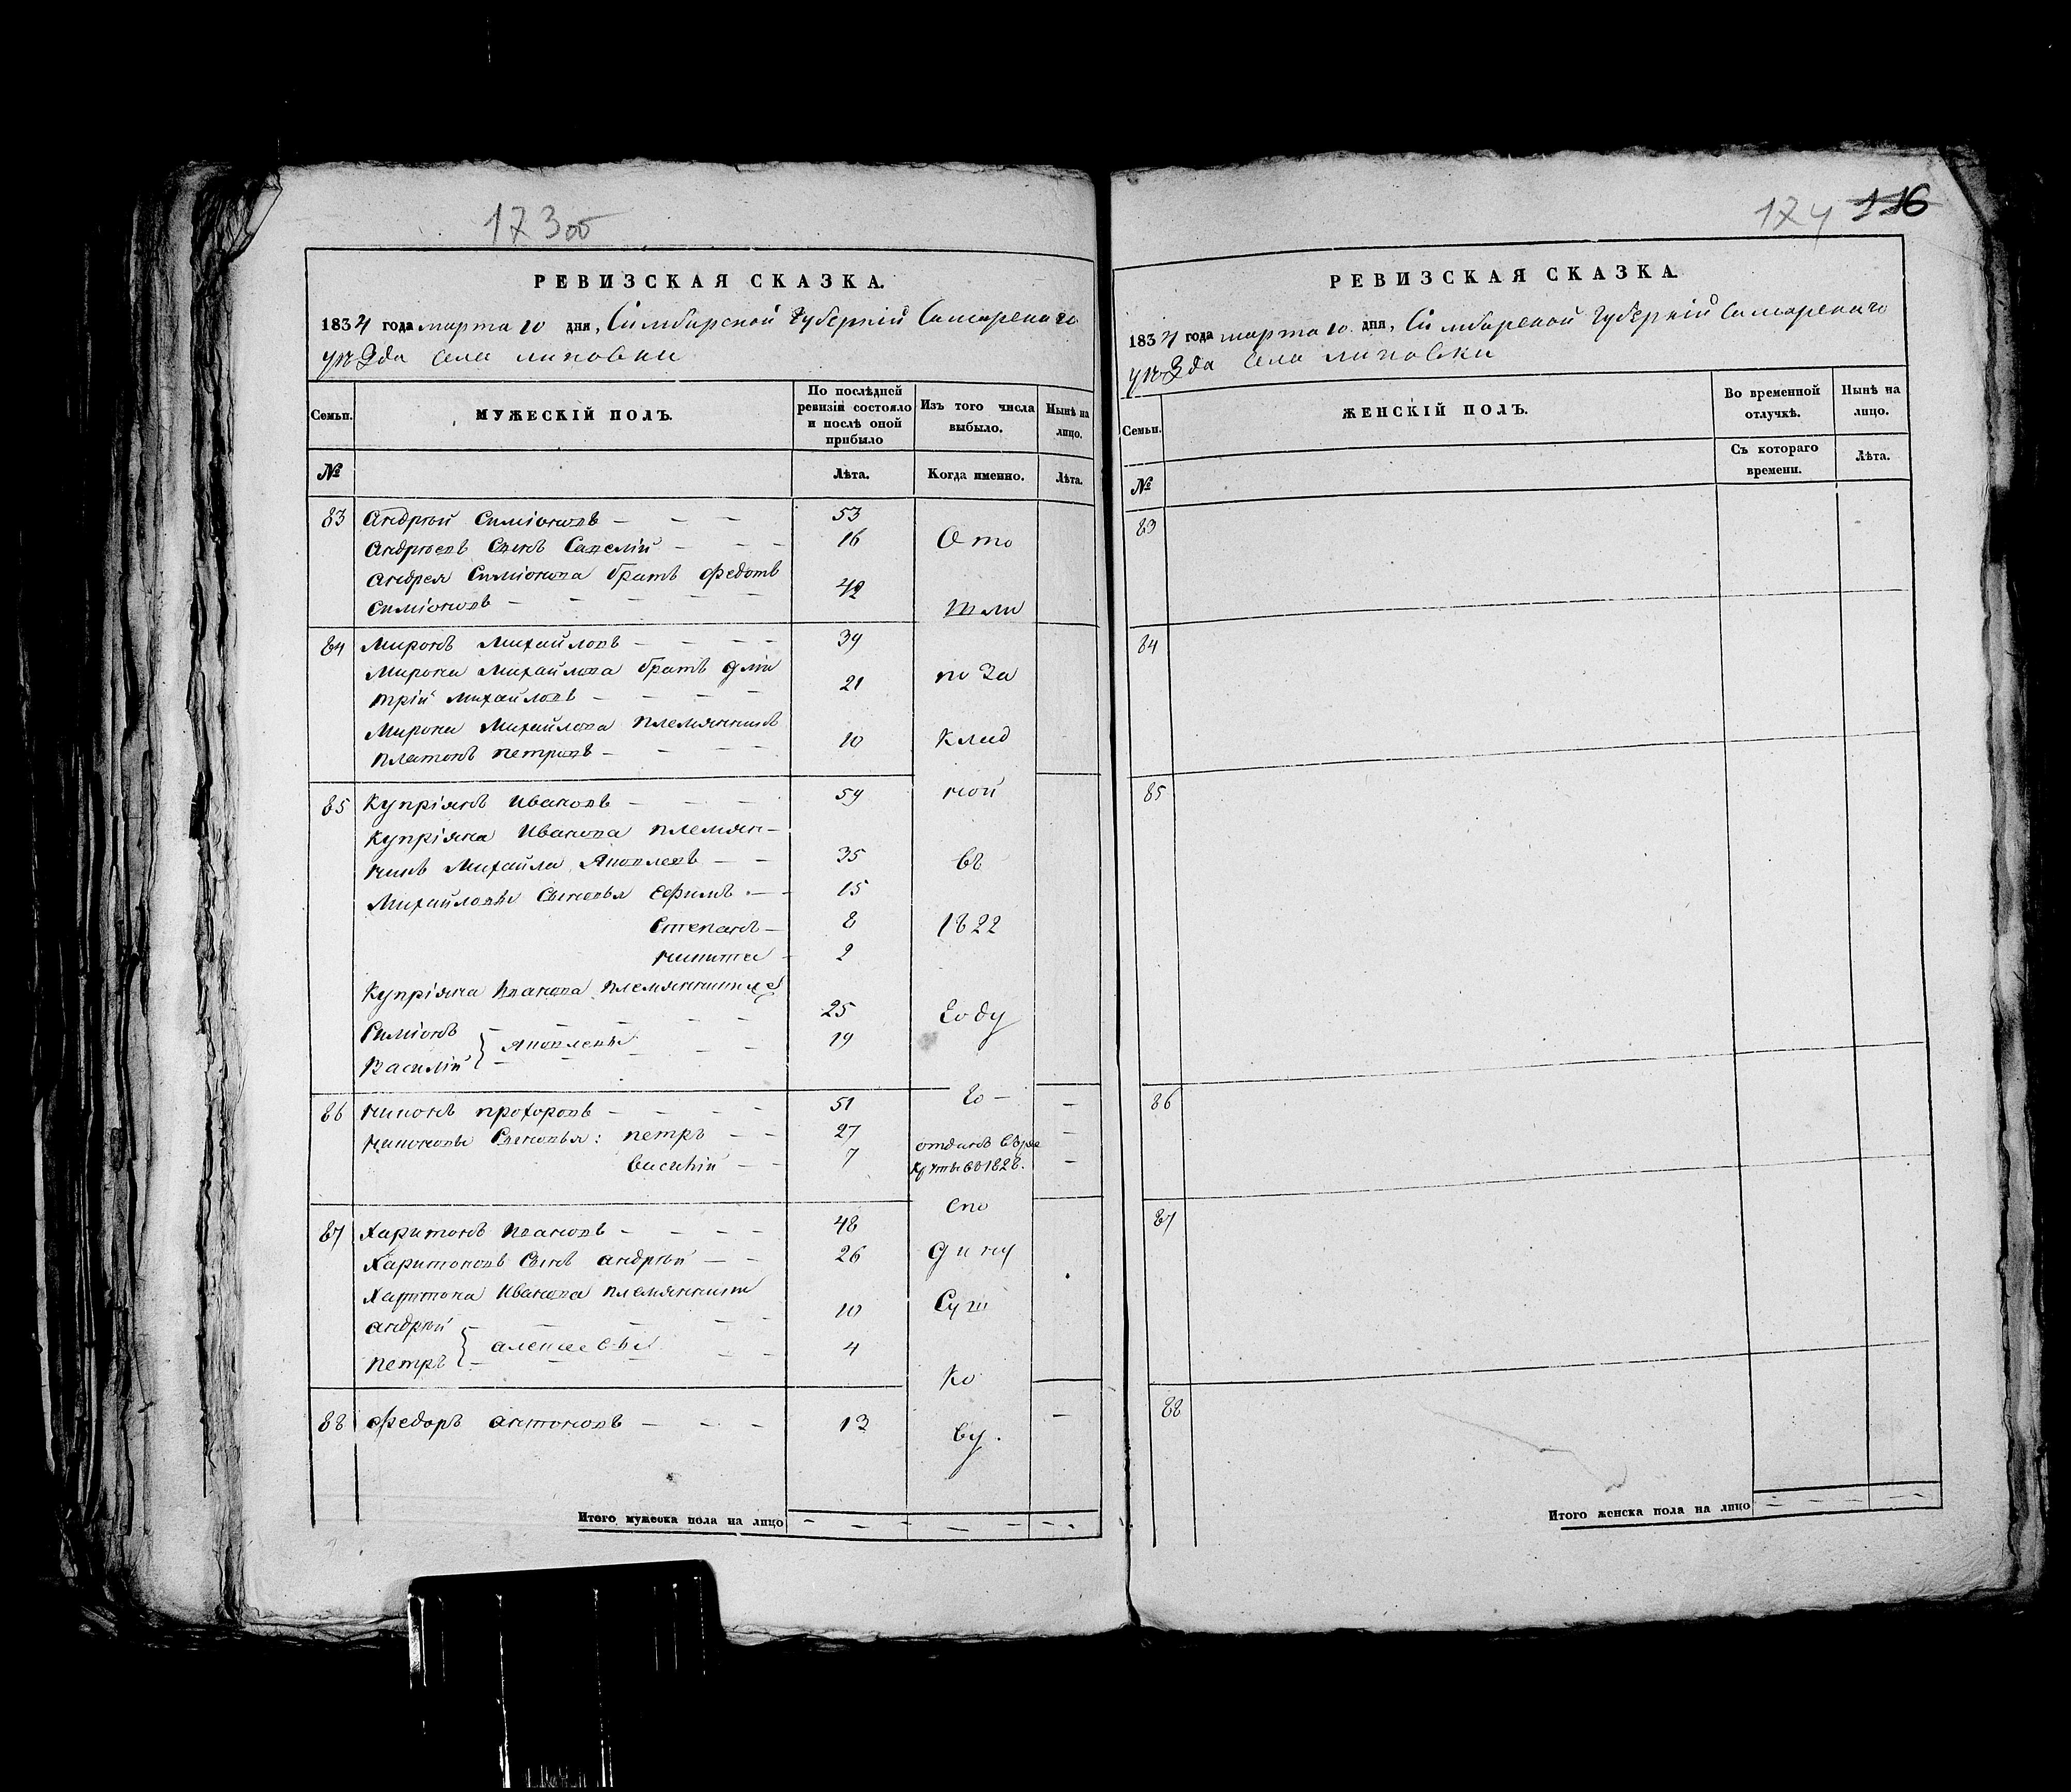 173 об
РЕВИЗСКАЯ СКАЗКА.
1834 года марта 10 дня, Симбирской Губерніи Самарскаго
уѣзда села липовки
Семьи. МУЖЕСКІЙ ПОЛЪ. По послѣдней ревизіи состояло и послѣ оной прибыло Изъ того числа выбыло. Нынѣ на лицо.
№ Лѣта. Когда именно. Лѣта.
83 Андрѣй Симіоновъ — — — 53
Андрѣевъ Сынъ Савелій — — — 16 Ото
Андрея Симіонова братъ Федотъ
Симіоновъ — — — — — 42 шли
84 Миронъ Михайловъ — — — — 39
Мирона Михайлова братъ Дми
трій Михайловъ — — — — 21 по За
Мирона Михайлова племянникъ
Платонъ Петровъ — — — — 10 клад
85 Купріянъ Ивановъ — — — 59 ной
Купріяна Иванова племян—
никъ Михайла Яковлевъ — — 35 въ
Михайловы Сыновья Ефимъ — — 15
Степанъ — 8 1822
никита — 2
Купріяна Иванова племянники
Симіонъ — — — — — 25 Году
Василій } Яковлевы — — 19
86 никонъ прохоровъ — — — — 51 Го — —
никоновы Сыновья: петръ — — 27 отданъ въ ре —
василій — — 7 круты въ 1828. —
87 Харитонъ Ивановъ — — — — 48 спо
Харитоновъ Сынъ андрѣй — — 26 дину
Харитона Иванова племянники
андрѣй — — — — — 10 Суш
Петръ } алексеевы — — 4
ко
88 Федоръ антоновъ — — — 13 ву. —
Итого мужеска пола на лицо — — — — — — —
174 116
РЕВИЗСКАЯ СКАЗКА.
1834 года марта 10 дня, Симбирской Губерніи Самарскаго
уѣзда села липовки
Семьи. ЖЕНСКІЙ ПОЛЪ. Во временной отлучкѣ. Нынѣ на лицо.
№ Съ котораго времени. Лѣта.
83
84
85
86
87
88
Итого женска пола на лицо — — — — —